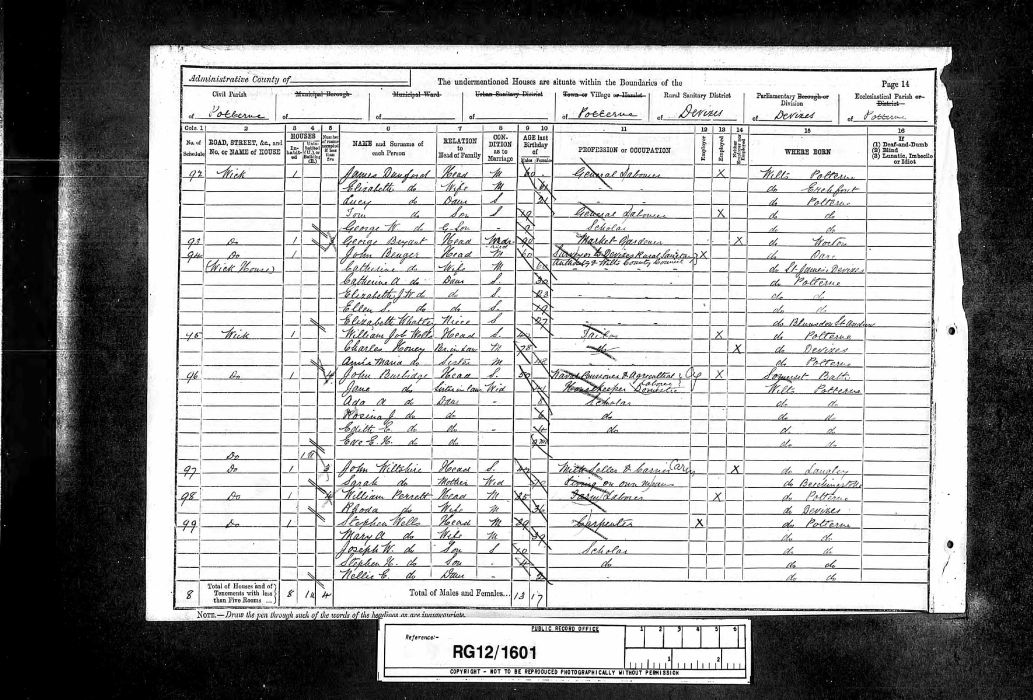 Administrative County of
The undermentioned Houses are situate within the Boundaries of the
Page 14
Civil Parish
Municipal Borough
Municipal Ward
Urban Sanitary District
Town or Village or Hamlet
Rural Sanitary District
Parliamentary Borough or Division
Ecclesiastical Parish or District
of Potterne of of of of Potterne of Devizes of Devizes of Potterne
Cols. 1 2 3 4 5 6 7 8 9 10 11 12 13 14 15 16
No. of Schedule
ROAD, STREET, &c., and No. or NAME of HOUSE
HOUSES
Inhabited
NAME and Surname of each Person
RELATION to Head of Family
CONDITION as to Marriage
AGE last Birthday of
Males Females
PROFESSION or OCCUPATION
Employer
Employed
WHERE BORN
If
(1) Deaf-and-Dumb
(2) Blind
(3) Lunatic, Imbecile or Idiot
92 Wick 1 James Head M 60 General Labourer X Wilts Potterne
Elizabeth do Wife M do
Lucy do Daur S 21 do Potterne
Tom do Son S 19 General Labourer X do do
George W. do G-Son - 9 Scholar do do
93 Do 1 George Bryant Head Market Gardener X do Worton
94 Do 1 John Benger Head M 60 Surveyor to Devizes Rural Sanitary X do
(Wick House) Catherine do Wife M Authority & Wilts County Council do St James Devizes
Catherine A do Daur S. 30 do Potterne
Elizabeth J. W. do do S. 23 do do
Ellen S. do do S. 19 do do
Elizabeth Niece S 27 do Blunsdon St Andrew
95 Wick 1 William Job Wells Head S. Tailor X do Potterne
Charles Honey Br. in Law M 78 X do Devizes
Maria do Sister M do Potterne
96 Do 1 4 John Head S. Naval Pensioner & Agricultural Labourer Ag X Somerset Bath
Jane do Sister in Law Wid Housekeeper Domestic Wilts Potterne
Ada A do Daur - 8 Scholar do do
Rosina J. do do 6 do do do
Edith E. do do - do do do
Eve E. H. do do do do
Do 1 U
97 Do 1 3 John Wiltshire Head S. Milk Seller & Carrier X do Langley
Sarah do Mother Wid Living on own means do
98 Do 1 4 William Perrett Head M 35 Farm Labourer X do Potterne
Rhoda do Wife M 36 do Devizes
99 Do 1 Stephen Wells Head M 39 Carpenter X do Potterne
Mary A do Wife M 39 do do
Joseph W. do Son S 10 Scholar do do
Stephen H. do Son - do do do
Nellie E. do Daur - 2 do do
8 Total of Houses and of Tenements with less than Five Rooms 8 1U 4 Total of Males and Females... 13 17
NOTE.—Draw the pen through such of the words of the headings as are inappropriate.
PUBLIC RECORD OFFICE
Reference:-
RG12/1601
1 2 3 4 5 6
1 2
COPYRIGHT - NOT TO BE REPRODUCED PHOTOGRAPHICALLY WITHOUT PERMISSION